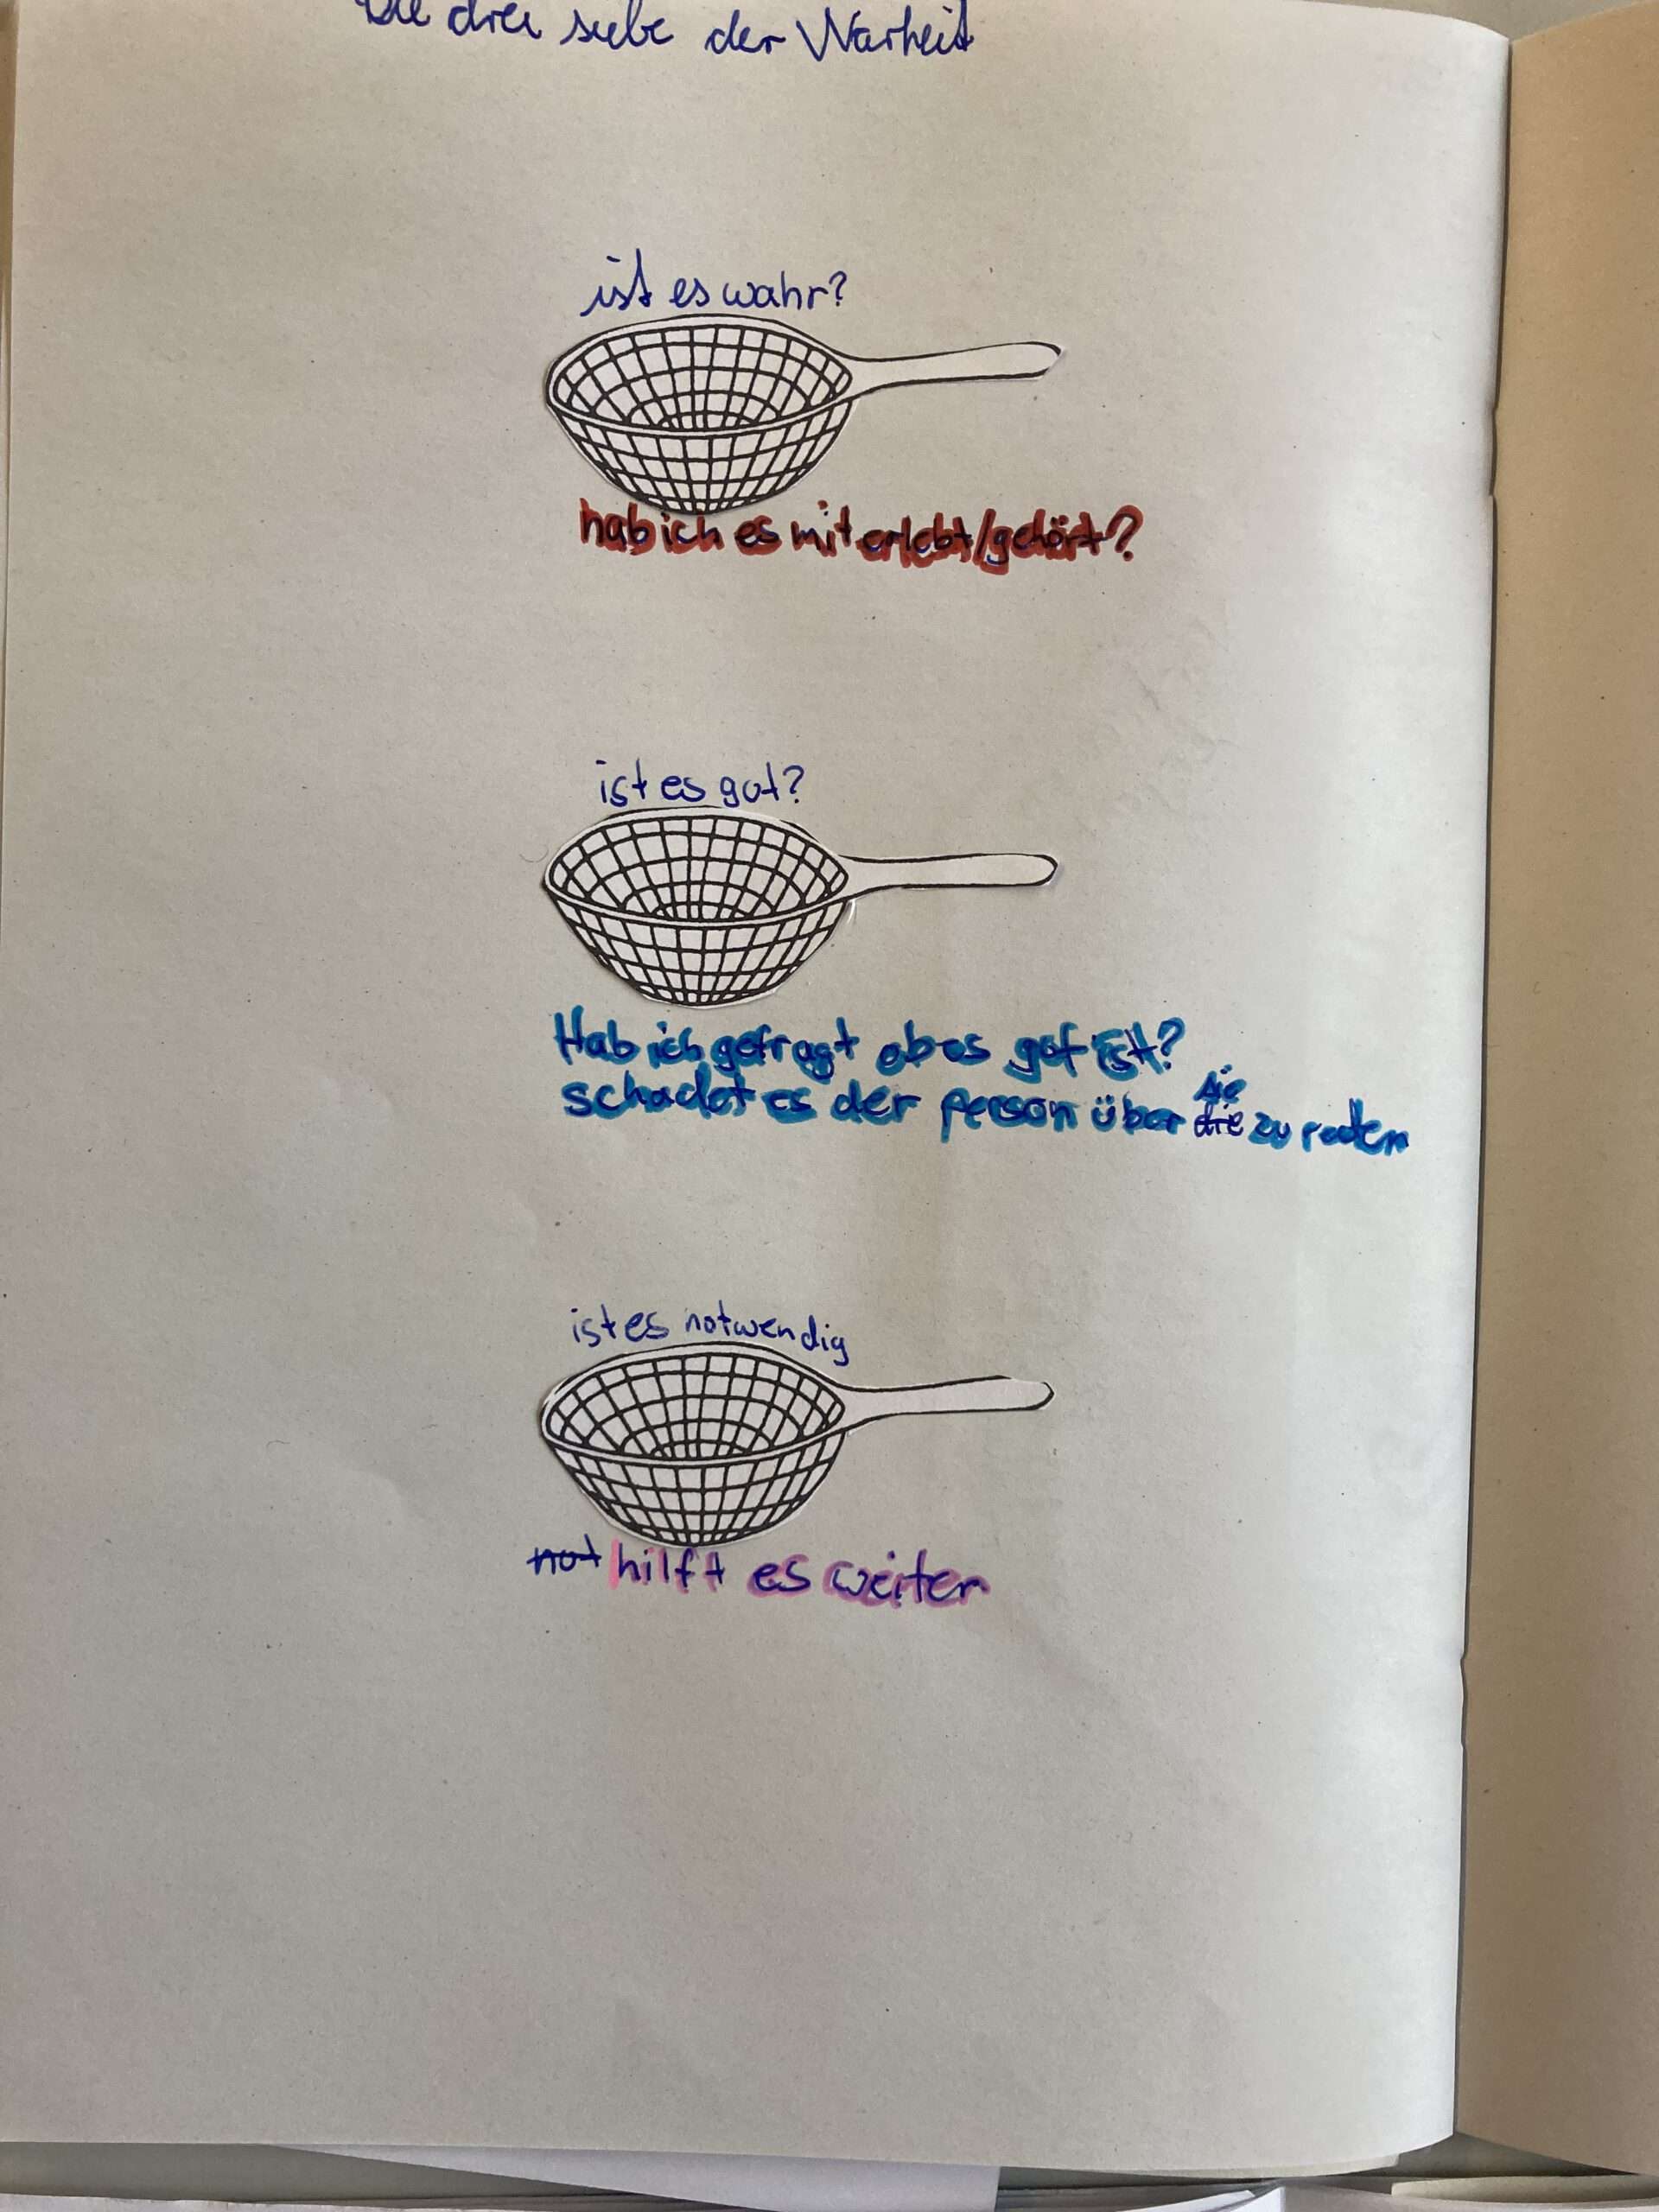 Die drei siebe der Warheit
ist es wahr?
hab ich es mit erlebt/gehört?
ist es gut?
Hab ich gefragt ob es gut ist?
sie
schadet es der person über die zu reden
ist es notwendig
not hilft es weiter